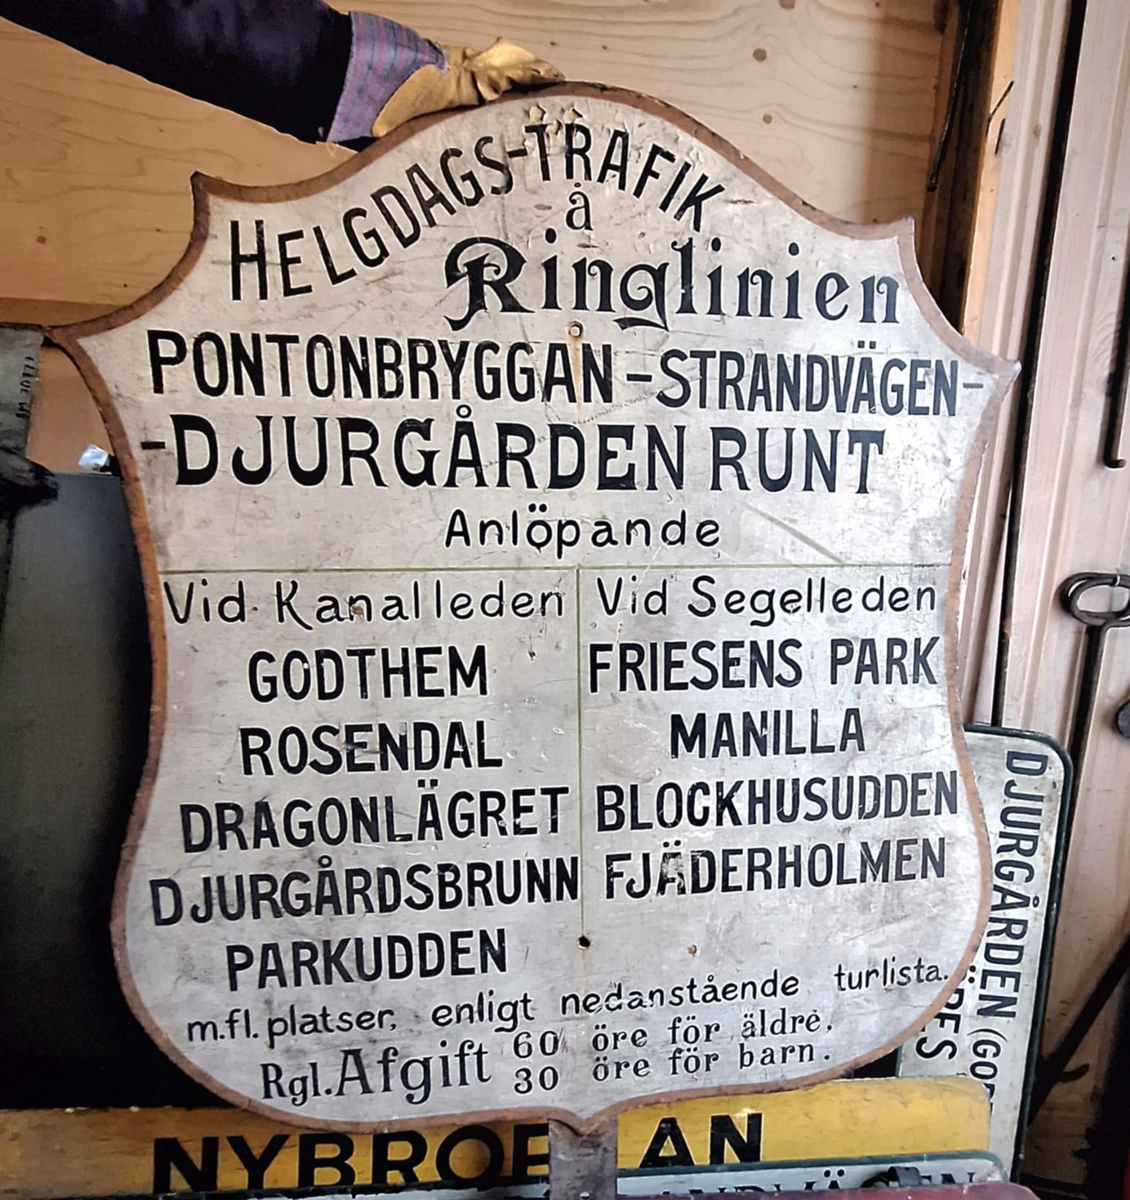 HELGDAGS-TRAFIK
å
Ringlinien
PONTONBRYGGAN-STRANDVÄGEN-
-DJURGÅRDEN RUNT
Anlöpande
Vid Kanalleden
GODTHEM
ROSENDAL
DRAGONLÄGRET
DJURGÅRDSBRUNN
PARKUDDEN
Vid Segelleden
FRIESENS PARK
MANILLA
BLOCKHUSUDDEN
FJÄDERHOLMEN
m.fl. platser, enligt nedanstående turlista.
Rgl. Afgift 60 öre för äldre,
30 öre för barn.
DJURGÅRDEN